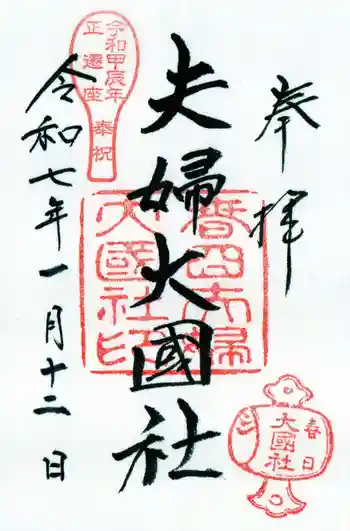 奉拝
夫婦大國社
令和七年一月十二日
令和甲辰年
正遷座
奉祝
春日夫婦
大國社印
春日
大國社